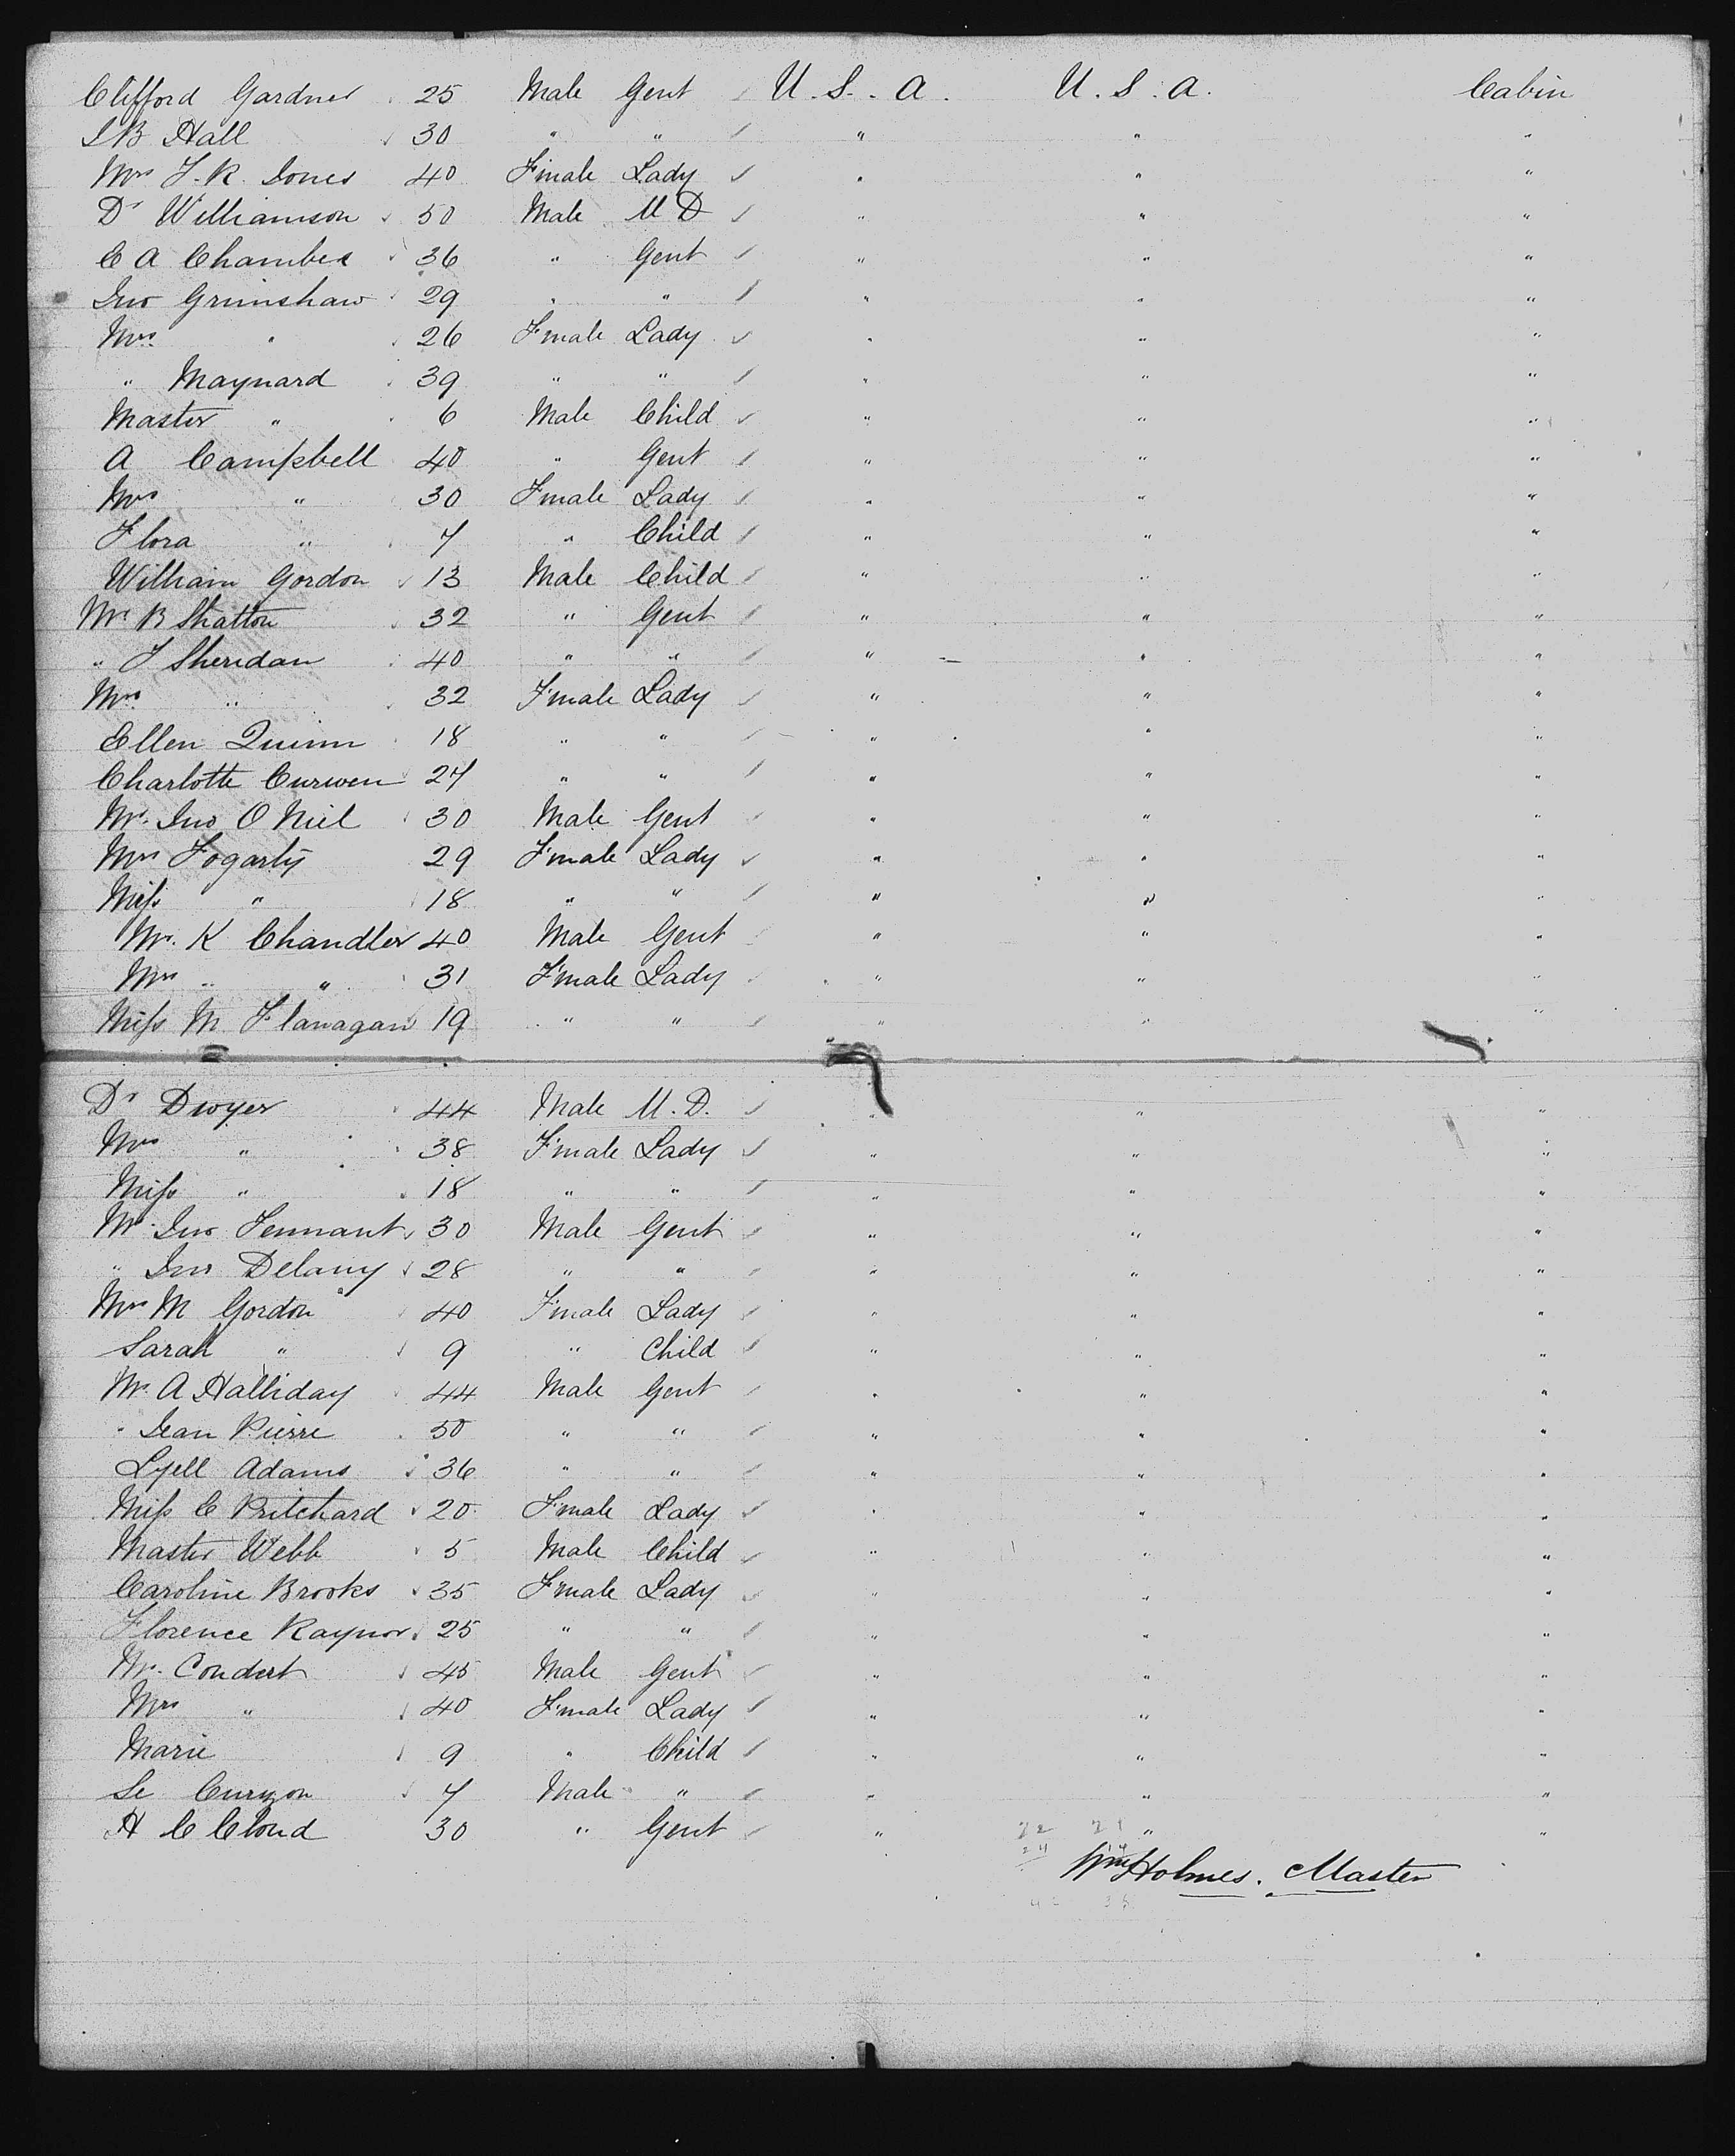 Clifford Gardner 25 Male Gent U.S.A. U.S.A. Cabin
S B Hall 30 " " " " "
Mrs J. R. Jones 40 Female Lady " " "
Dr Williamson 50 Male M D " " "
C A Chamber 36 " Gent " " "
Jno Grimshaw 29 " " " " "
Mrs " 26 Female Lady " " "
" Maynard 39 " " " " "
Master " 6 Male Child " " "
A Campbell 40 " Gent " " "
Mrs " 30 Female Lady " " "
Flora " 7 " Child " " "
William Gordon 13 Male Child " " "
Mr B Shatton 32 " Gent " " "
" J Sheridan 40 " " " " "
Mrs " 32 Female Lady " " "
Ellen Quinn 18 " " " " "
Charlotte Curwen 27 " " " " "
Mr. Jno O Niel 30 Male Gent " " "
Mrs Fogarty 29 Female Lady " " "
Miss " 18 " " " " "
Mr. K Chandler 40 Male Gent " " "
Mrs " " 31 Female Lady " " "
Miss M Flanagan 19 " " " " "
Dr Dwyer 44 Male M.D. " " "
Mrs " 38 Female Lady " " "
Miss " 18 " " " " "
Mr Jno Tennant 30 Male Gent " " "
" Jno Delany 28 " " " " "
Mrs M Gordon 40 Female Lady " " "
Sarah " 9 " Child " " "
Mr. A Halliday 44 Male Gent " " "
" Jean Pierre 50 " " " " "
Lyell Adams 36 " " " " "
Miss C Pritchard 20 Female Lady " " "
Master Webb 5 Male Child " " "
Caroline Brooks 35 Female Lady " " "
Florence Raynor 25 " " " " "
Mr. Condert 45 Male Gent " " "
Mrs " 40 Female Lady " " "
Marie 9 " Child " " "
Le Curzon 7 Male " " " "
H C Cloud 30 " Gent " " "
22 21
24 14
Wm Holmes. Master